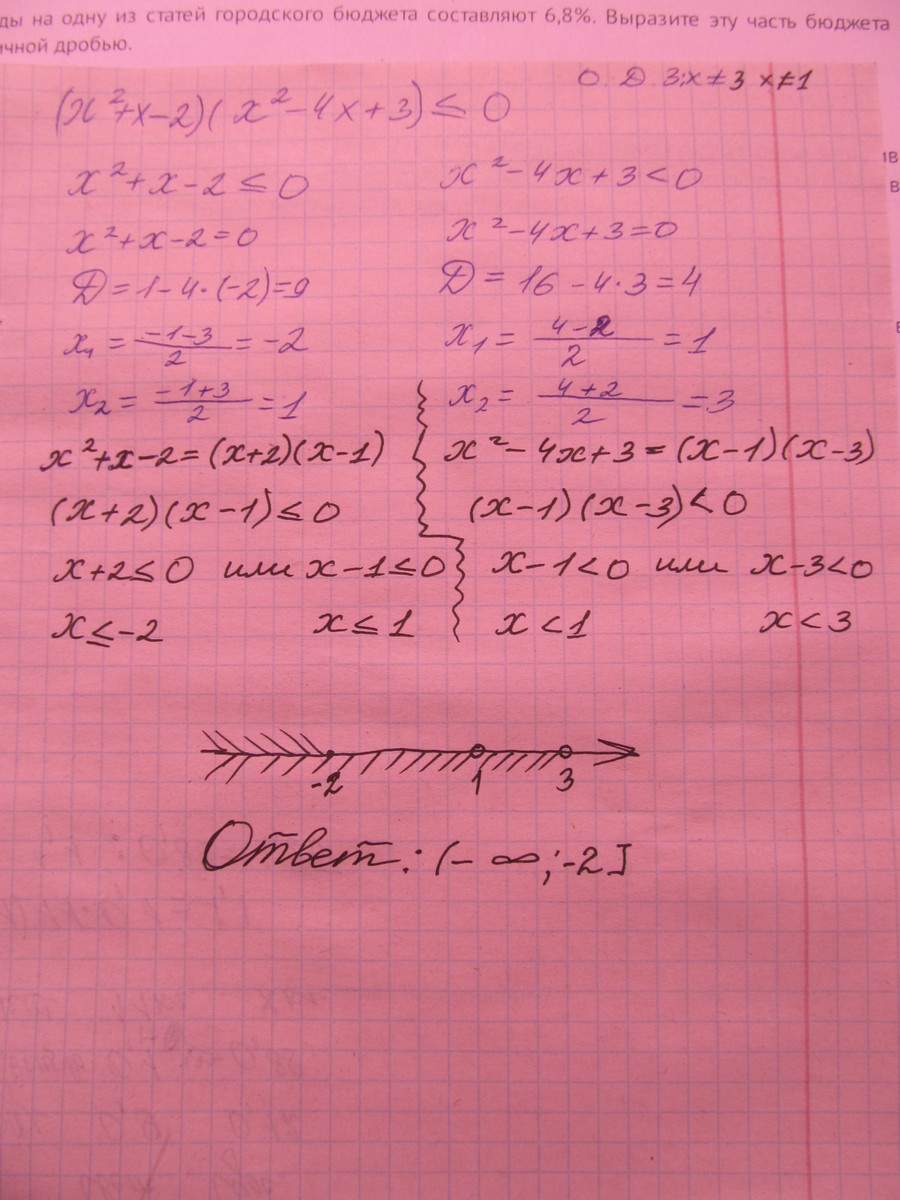 ды на одну из статей городского бюджета составляют 6,8%. Выразите эту часть бюджета
ичной дробью.
О.Д.З: x ≠ 3 x ≠ 1
(x²+x-2)(x²-4x+3) ≤ 0
x²+x-2 ≤ 0
x²+x-2=0
D=1-4·(-2)=9
x₁ = (-1-3)/2 = -2
x₂ = (-1+3)/2 = 1
x²+x-2=(x+2)(x-1)
(x+2)(x-1) ≤ 0
x+2 ≤ 0 или x-1 ≤ 0
x ≤ -2 x ≤ 1
x²-4x+3 < 0
x²-4x+3=0
D = 16 - 4·3 = 4
x₁ = (4-2)/2 = 1
x₂ = (4+2)/2 = 3
x²-4x+3 = (x-1)(x-3)
(x-1)(x-3) < 0
x-1<0 или x-3<0
x < 1 x < 3
-2 1 3
Ответ: (-∞; -2]
1В
В